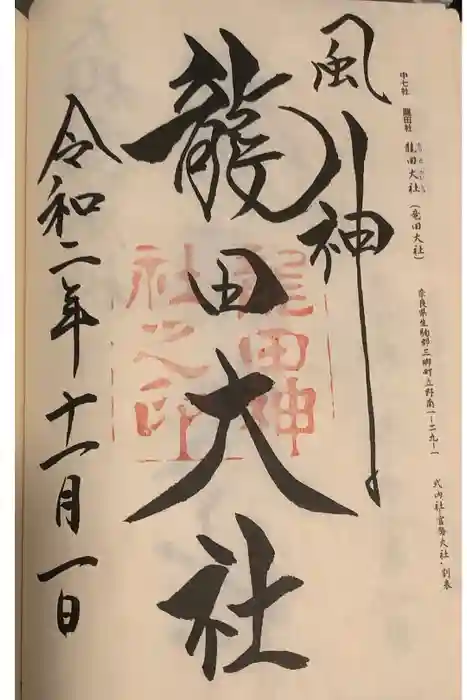 中七社 龍田社 龍田大社(竜田大社)
奈良県生駒郡三郷町立野南一-二九-一
式内社・官幣大社・別表
風神
龍田大社
龍田神
社之印
令和二年十一月一日